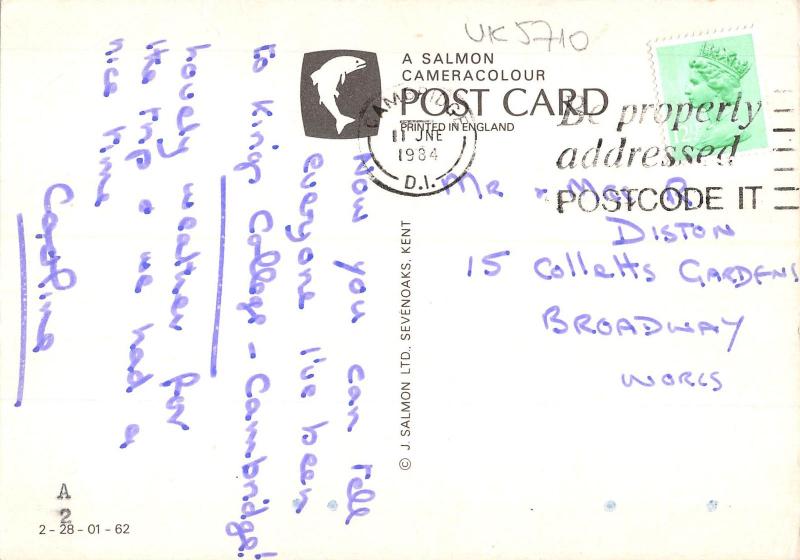 UK5710
A SALMON
CAMERACOLOUR
POST CARD
PRINTED IN ENGLAND
CAMBRIDGE
11 JNE
1984
D.I.
Be properly
addressed
POSTCODE IT
Now you can tell
everyone I've been
to Kings College - Cambridge!
Lovely weather for
the trip & we had a
nice time
Mr & Mrs R.
DISTON
15 Colletts GARDENS
BROADWAY
WORCS
© J. SALMON LTD., SEVENOAKS, KENT
A
2
2 - 28 - 01 - 62